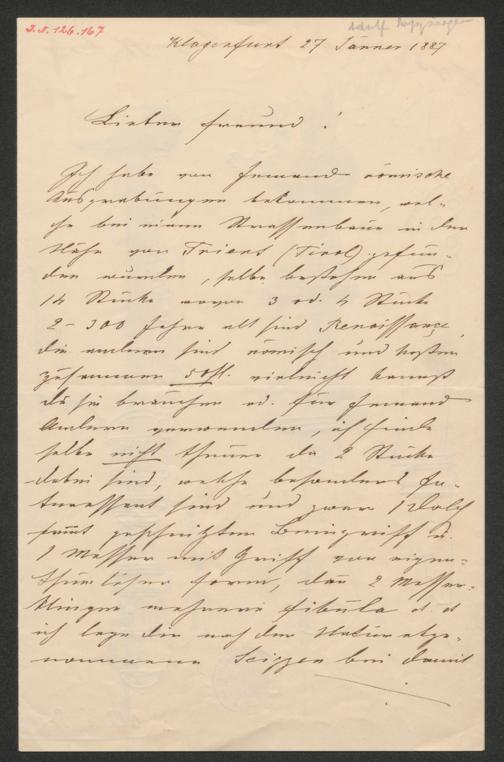 I.N. 126.167
Klagenfurt 27 Jänner 1887
Lieber Freund!
Ich habe von Jemand römische
Ausgrabungen bekommen, wel-
che bei einem Strassenbaue in der
Nähe von Trient (Tirol) gefun-
den wurden, selbe bestehen aus
14 Stücke wovon 3 od. 4 Stücke
2-300 Jahre alt sind Renaissance,
die anderen sind römisch und kosten
zusammen 50 fl. vielleicht kannst
du sie brauchen od. für Jemand
Anderen verwenden, ich finde
selbe nicht theuer da 2 Stücke
dabei sind, welche besonders In-
teressant sind und zwar 1 Dolch
samt geschnitzten Beingriff u.
1 Messer mit Griff von eigen-
thümlicher Form, dan 2 Messer-
klingen mehrere Fibula
ich lege dir nach der Natur abge-
nommene Scizzen bei damit